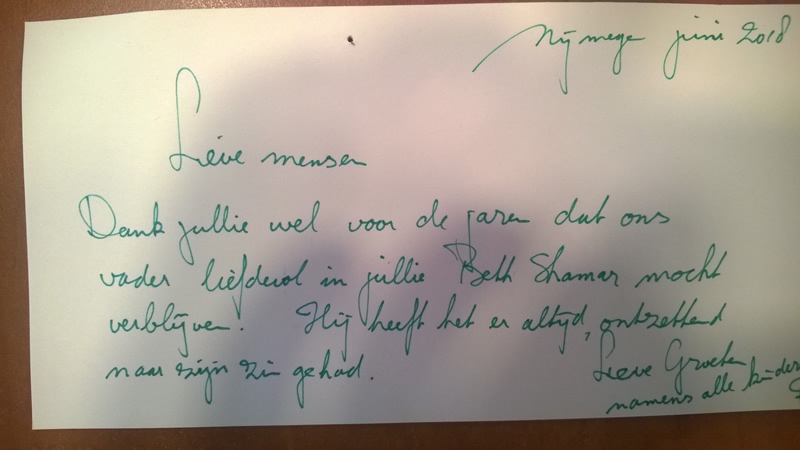 Nijmege juni 2018
Lieve mensen
Dank jullie wel voor de jaren dat ons
vader liefdevol in jullie Beth Shamar mocht
verblijven. Hij heeft het er altijd, ontzettend
naar zijn zin gehad.
Lieve Groeten
namens alle kinder